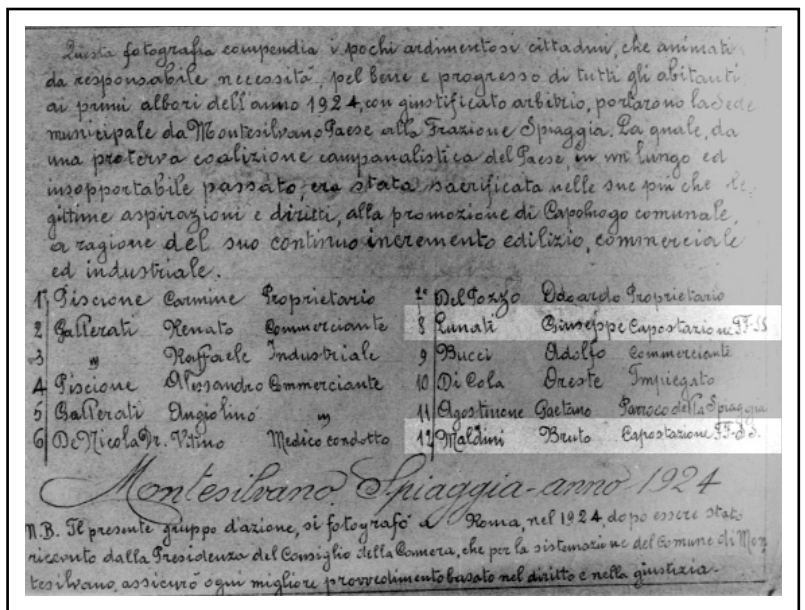 Questa fotografia compendia i pochi ardimentosi cittadini, che animati
da responsabile necessità, pel bene e progresso di tutti gli abitanti,
ai primi albori dell'anno 1924, con giustificato arbitrio, portarono la Sede
municipale da Montesilvano Paese alla Frazione Spiaggia. La quale, da
una proterva coalizione campanalistica del Paese, in un lungo ed
insopportabile passato, era stata sacrificata nelle sue più che le-
gittime aspirazioni e diritti, alla promozione di Capoluogo comunale,
a ragione del suo continuo incremento edilizio, commerciale
ed industriale.
1° Piscione Carmine Proprietario
2 Gallerati Renato Commerciante
3 " Raffaele Industriale
4 Piscione Alessandro Commerciante
5 Gallerati Angiolino "
6 De Nicola Dr. Vitino Medico condotto
7° Del Pozzo Edoardo Proprietario
8 Lunati Giuseppe Capostazione FF-SS
9 Bucci Adolfo Commerciante
10 Di Cola Oreste Impiegato
11 Agostinone Gaetano Parroco della Spiaggia
12 Maldini Bruto Capostazione FF-SS.
Montesilvano Spiaggia - anno 1924
N.B. Il presente gruppo d'azione, si fotografò a Roma, nel 1924, dopo essere stato
ricevuto dalla Presidenza del Consiglio della Camera, che per la sistemazione del Comune di Mon
tesilvano, assicurò ogni migliore provvedimento basato nel diritto e nella giustizia.-